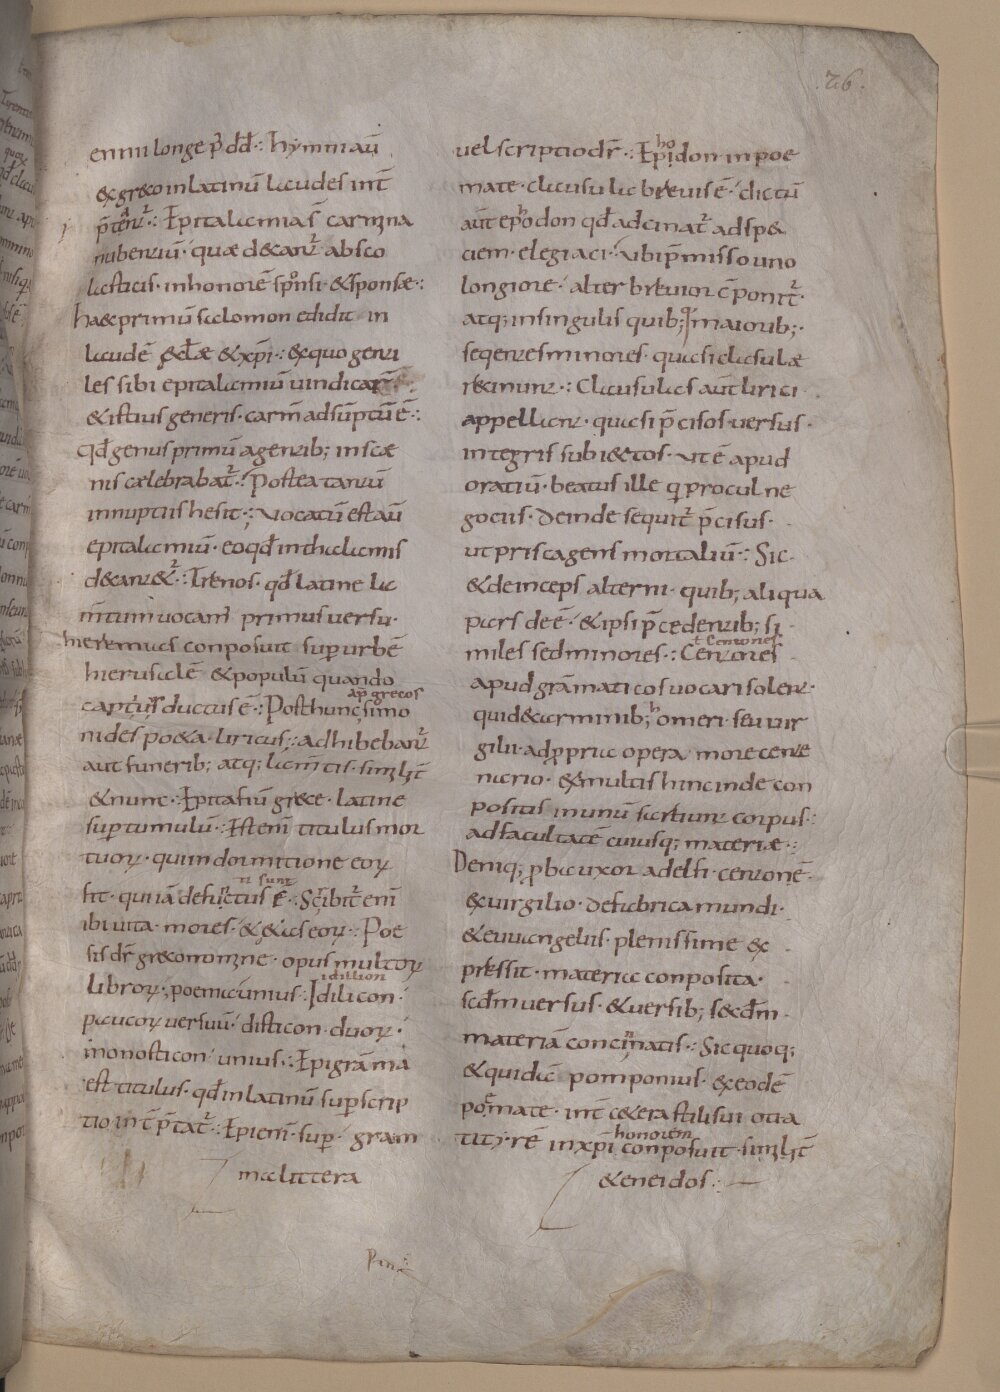 26.
ennii longe p̄ dd̄ : hymni aū
& greco in latinū laudes int̄
p̄tant᷑ : Epitalamia s̄ carmina
nubentiū quæ decant᷑ absco
lasticis · in honorē spōnsi · & sponsæ :
hæc primū salomon edidit in
laudē æccl̄æ & xp̄i : ex quo genti
les sibi epitalamiū uindicar̄
& istius generis · carm̄ adsūptū ē :
qd̄ genus primū agentib; in scæ
nis cælebrabat᷑ : Postea tantū
in nuptiis hesit : uocatū est aū
epitalamiū · eo qd̄ in thalamis
decantet᷑ : Trenos · qd̄ latine la
m̄tum uocam̄ primus uersu·
hieremias conposuit sup urbē
hierusalē & populū quando
ap̄ grecos
captiuus ductus ē : Post hunc simo
nides poeta · liricus : adhibebant᷑
aut funerib; atq; lam̄tis · similit̄
& nunc · Epitafiū grece · latine
sup tumulū · Est enī titulus mor
tuoꝝ · qui in dormitione eoꝝ
ti sunt
fit · qui iā defunctus ē : Scribit᷑ enī
ibi uita · mores · & ætas eoꝝ : Poe
sis dr̄ greco nomine · opus multoꝝ
idillion
libroꝝ ; poema unius : Idilicon ·
paucoꝝ uersuū distic̄on · duoꝝ ·
monosticon unius : Epigrāma
est titulus · qd̄ in latinū supscrip
tio int̄p̄tat᷑ : Epienī · sup · gram
ma littera
uel scriptio dr̄ : Epodon in poe
mate · clausula breuis ē dictū
aūt ephodon qd̄ adcinat᷑ ad spe
ciem · elegiaci · ubi p̄misso uno
longiore alter breuior c̄ponit᷑
atq; in singulis quib; maiorib;
seqentes minores · quasi clausulæ
recinunt : Clausulas aūt lirici
appellant · quasi p̄cisos uersus ·
integris subiectos · ut ē apud
oratiū · beatus ille q procul ne
gociis · deinde sequit᷑ p̄cisus ·
ut prisca gens mortaliū : Sic
& deinceps alterni · quib; aliqua
pars deē · & ipsi p̄cedentib; si
ł Centones
miles sed minores : Centones
apud grāmaticos uocari solent ·
qui de carminib; homeri · seu uir
gilii · ad ꝓpria opera more cente
nario · ex multis hinc inde con
positis in unū sarciunt corpus :
ad facultatē cuiusq; materiæ :
Deniq; ꝓba uxor adelfi centonē ·
ex uirgilio · de fabrica mundi ·
& euuangeliis · plenissime ex
pressit · materia conposita ·
scd̄m uersus · & uersib; scd̄m
materiā concinnatis : Sic quoq;
& quidā pomponius · ex eodē
poemate · int̄ cetera stili sui otia
honorem
titirē in xp̄i conposuit · similit̄
& eneidos :